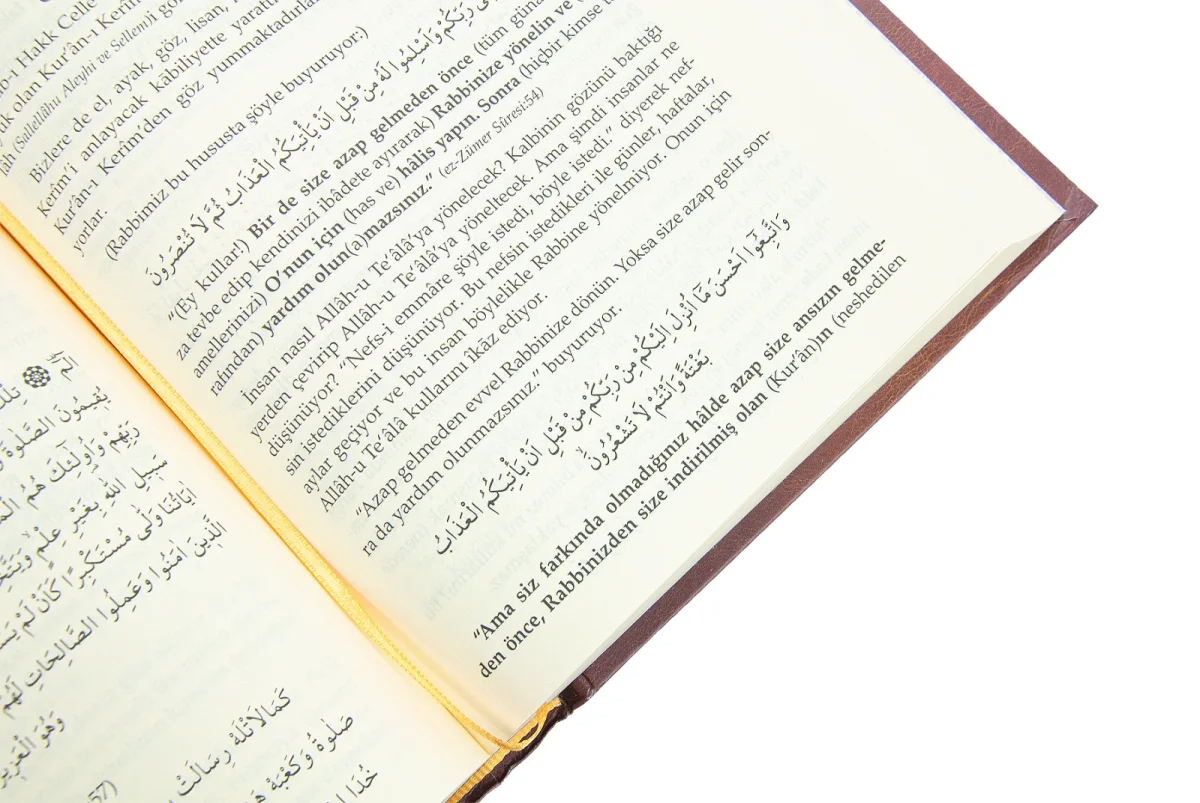 الٓمٓ ۞ تِلْكَ
يُقِيمُونَ الصَّلٰوةَ
رَبِّهِمْ وَاُولٰٓئِكَ هُمُ
سَبِيلِ اللّٰهِ بِغَيْرِ عِلْمٍ وَيَتَّخِ
اٰيَاتُنَا وَلّٰى مُسْتَكْبِرًا كَاَنْ لَمْ
الَّذِينَ اٰمَنُوا وَعَمِلُوا الصَّالِحَاتِ لَهُمْ
وَهُوَ الْعَزِيزُ
57)
كَمَالَاتْلَهْ رِسَالَتْ
صَلٰوةُ وَكَعْبَهْ
خُدَا
b-ı Hakk Celle
olan Kur'ân-ı Kerîm'i
(Sallellâhu Aleyhi ve Sellem)i
Bizlere de el, ayak, göz, lisan,
Kerîm'i anlayacak kâbiliyette
Kur'ân-ı Kerîm'den göz yummaktadırla
yorlar.
(Rabbimiz bu hususta şöyle buyuruyor:)
رَبِّكُمْ وَاَسْلِمُوا لَهُ مِنْ قَبْلِ اَنْ يَأْتِيَكُمُ الْعَذَابُ ثُمَّ لَا تُنْصَرُونَ
"(Ey kullar!) Bir de size azap gelmeden önce (tüm
za tevbe edip kendinizi ibâdete ayırarak) Rabbinize yönelin ve
amellerinizi) O'nun için (has ve) hâlis yapın. Sonra (hiçbir kimse
rafından) yardım olun(a)mazsınız." (ez-Zümer Sûresi:54)
İnsan nasıl Allâh-u Te'âlâ'ya yönelecek? Kalbinin gözünü baktığı
yerden çevirip Allâh-u Te'âlâ'ya yöneltecek. Ama şimdi insanlar ne
düşünüyor? "Nefs-i emmâre şöyle istedi, böyle istedi." diyerek nef-
sin istediklerini düşünüyor. Bu nefsin istedikleri ile günler, haftalar,
aylar geçiyor ve bu insan böylelikle Rabbine yönelmiyor. Onun için
Allâh-u Te'âlâ kullarını îkâz ediyor.
"Azap gelmeden evvel Rabbinize dönün. Yoksa size azap gelir son-
ra da yardım olunmazsınız." buyuruyor.
وَاتَّبِعُٓوا اَحْسَنَ مَٓا اُنْزِلَ اِلَيْكُمْ مِنْ رَبِّكُمْ مِنْ قَبْلِ اَنْ يَأْتِيَكُمُ الْعَذَابُ
بَغْتَةً وَاَنْتُمْ لَا تَشْعُرُونَ
"Ama siz farkında olmadığınız hâlde azap size ansızın gelme-
den önce, Rabbinizden size indirilmiş olan (Kur'ân)ın (neshedilen